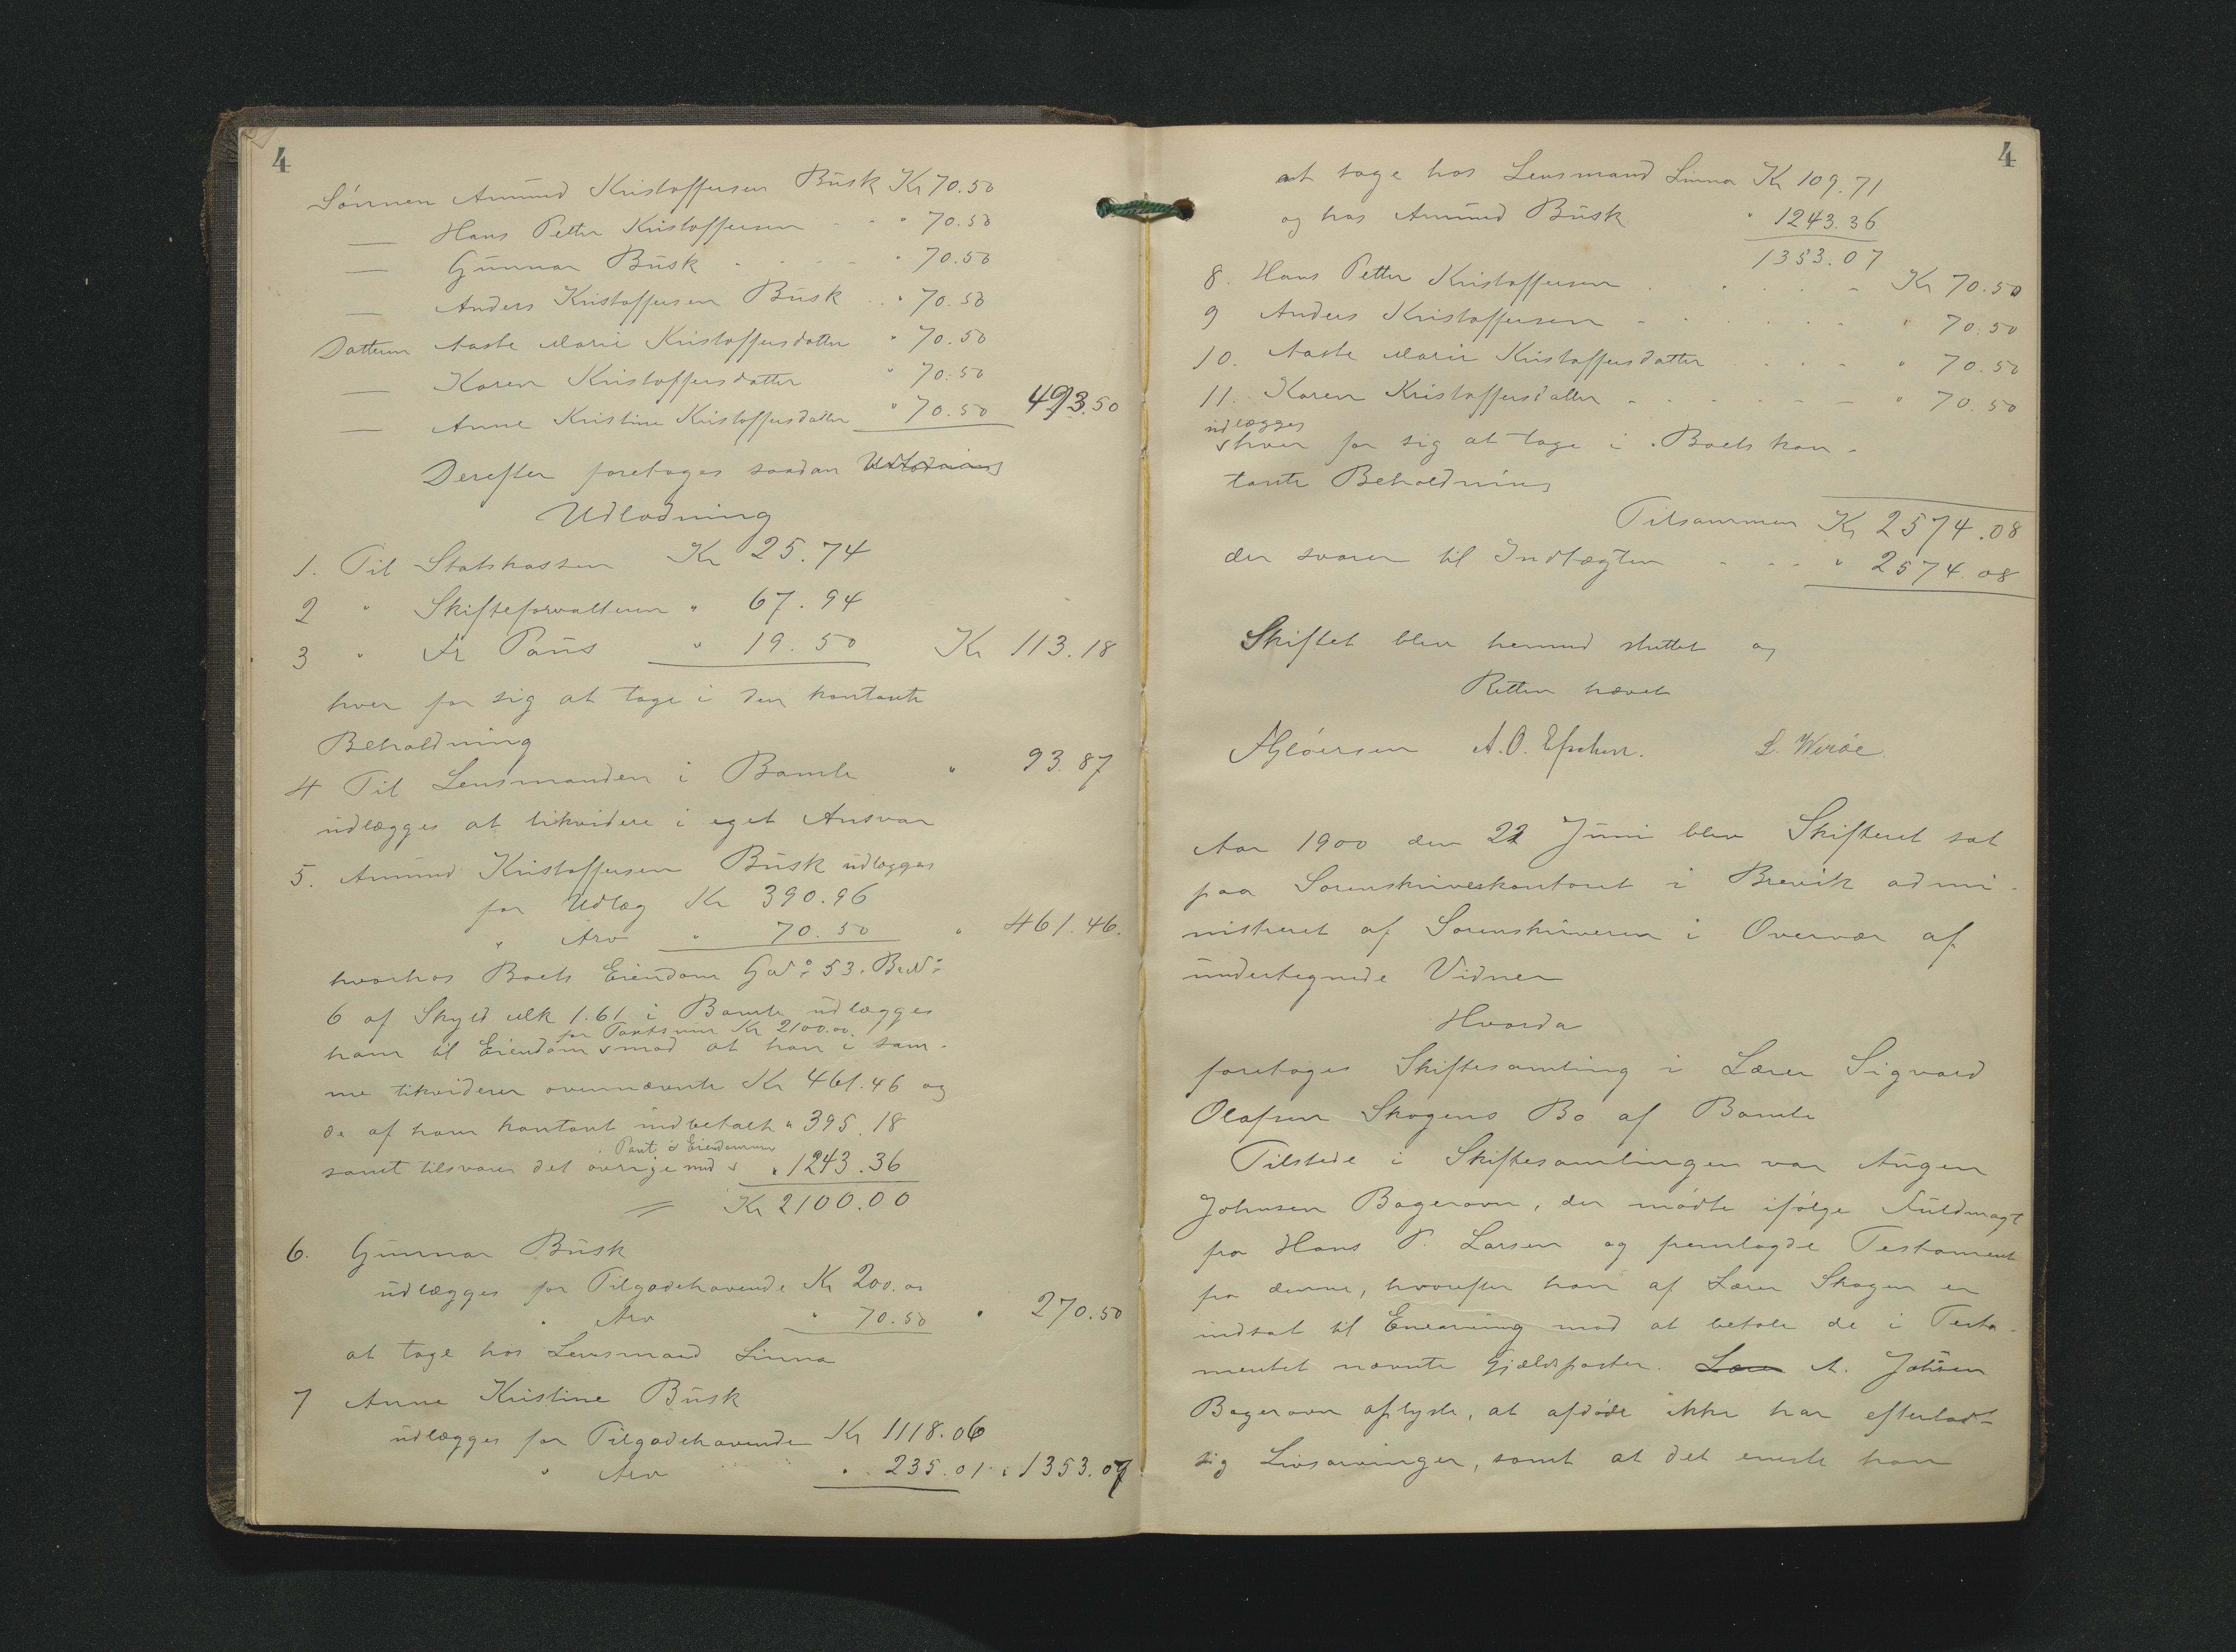 4
Sønnen Amund Kristoffersen Busk Kr 70.50
— Hans Petter Kristoffersen - - " 70.50
— Gunnar Busk - - - - " 70.50
— Anders Kristoffersen Busk . . " 70.50
Datteren Aaste Marie Kristoffersdatter " 70.50
— Karen Kristoffersdatter " 70.50
— Anne Kristine Kristoffersdatter " 70.50 493.50
Derefter foretoges saadan Udlodning
Udlodning
1. Til Statskassen Kr 25.74
2 " Skifteforvalteren " 67.94
3 " Fr Paus " 19.50 Kr 113.18
hver for sig at tage i den kontante
Beholdning
4 Til Lensmanden i Bamle " 93.87
udlægges at likvidere i eget Ansvar
5. Amund Kristoffersen Busk udlægges
for Udlæg Kr 390.96
" Arv " 70.50 " 461.46.
hvorhos Boets Eiendom GNo: 53. BrNo:
6 af Skyld Mk 1.61 i Bamle udlægges
for Taxtsum Kr 2100.00.
ham til Eiendom v mod at han i sam-
me likviderer ovennævnte Kr 461.46 og
de af ham kontant indbetalt " 395.18
Pant i Eiendommen
samt tilsvarer det øvrige med v " 1243.36
= Kr 2100.00
6. Gunnar Busk
udlægges for Tilgodehavende Kr 200.00
" Arv " 70.50 " 270.50
at tage hos Lensmand Linna
7 Anne Kristine Busk
udlægges for Tilgodehavende Kr 1118.06
" Arv " 235.01 " 1353.07
4
at tage hos Lensmand Linna Kr 109.71
og hos Amund Busk " 1243.36
1353.07
8. Hans Petter Kristoffersen . . . . - Kr 70.50
9 Anders Kristoffersen - - . . . - " 70.50
10. Aaste Marie Kristoffersdatter . . . . " 70.50
11. Karen Kristoffersdatter - - - - - - " 70.50
udlægges
v hver for sig at tage i Boets kon-
tante Beholdning
Tilsammen Kr 2574.08
der svarer til Indtægten - - - " 2574.08
Skiftet blev hermed sluttet og
Retten hævet
A. O. L. Wirøe.
Aar 1900 den 22 Juni blev Skifteret sat
paa Sorenskriverkontoret i Brevik admi-
nistreret af Sorenskriveren i Overvær af
undertegnede Vidner
Hvorda
foretoges Skiftesamling i Lærer Sigvard
Olafsen Skogens Bo af Bamle
Tilstede i Skiftesamlingen var Augen
Johnsen Bagerovn, der mødte ifølge Fuldmagt
fra Hans P. Larsen og fremlagde Testament
fra denne, hvorefter han af Lærer Skogen er
indsat til Enearving mod at betale de i Testa-
mentet nævnte Gjældsposter. Lærer A. Johnsen
Bagerovn oplyste, at afdøde ikke har efterladt
sig Livsarvinger, samt at det eneste han